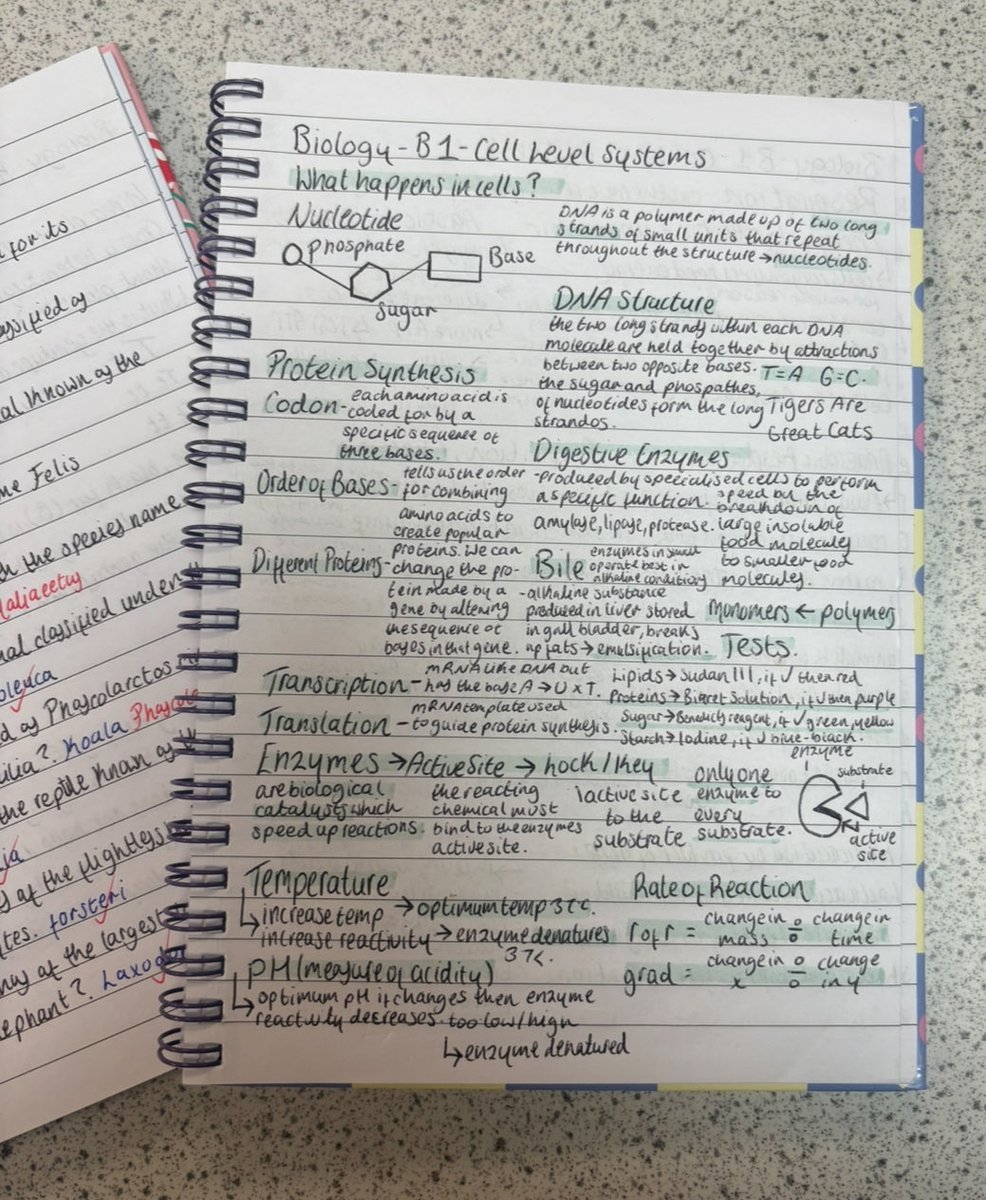 for its
assified as
al known as the
me Felis
the species name
aliaeetus
nal classified under
oleuca
d as Phascolarctos
ilia? Koala
the reptile known as
ia
s of the flightless
tes. forsteri
may of the largest
ephant?
Biology - B1 - Cell Level Systems
What happens in cells?
Nucleotide
phosphate
Base
sugar
DNA is a polymer made up of two long
strands of small units that repeat
throughout the structure → nucleotides.
DNA Structure
the two long strands within each DNA
molecule are held together by attractions
between two opposite bases. T=A G=C.
the sugar and phospathes,
of nucleotides form the long
strandos.
Tigers Are
Great Cats
Protein Synthesis
Codon - each amino acid is
coded for by a
specific sequence of
three bases.
Order of Bases - tells us the order
for combining
amino acids to
create popular
proteins. We can
Different Proteins - change the pro-
tein made by a
gene by altering
the sequence of
bases in that gene.
Digestive Enzymes
- produced by specialised cells to perform
a specific function.
amylase, lipase, protease.
speed up the
breakdown of
large insoluble
food molecules
to smaller food
molecules.
Bile
enzymes in small
operate best in
alkaline conditions
- alkaline substance
produced in liver stored
in gall bladder, breaks
up fats → emulsification.
monomers ← polymers
Tests.
Lipids → Sudan III, if ✓ then red
Proteins → Biuret Solution, if ✓ then purple
Sugar → Benedicts reagent, if ✓ green, yellow
Starch → Iodine, if ✓ blue-black.
Transcription - mRNA like DNA but
has the base A → U x T.
Translation - mRNA template used
to guide protein synthesis.
Enzymes → Active Site → Lock/Key
are biological
catalysts which
speed up reactions.
the reacting
chemical must
bind to the enzymes
active site.
1 active site
to the
substrate
only one
enzyme to
every
substrate.
enzyme
substrate
active
site
Temperature
↳ increase temp → optimum temp 37c.
increase reactivity → enzyme denatures
37<.
pH (measure of acidity)
↳ optimum pH if changes then enzyme
reactivity decreases. too low/high
↳ enzyme denatured
Rate of Reaction
r of r = change in mass ÷ change in time
grad = change in x ÷ change in y